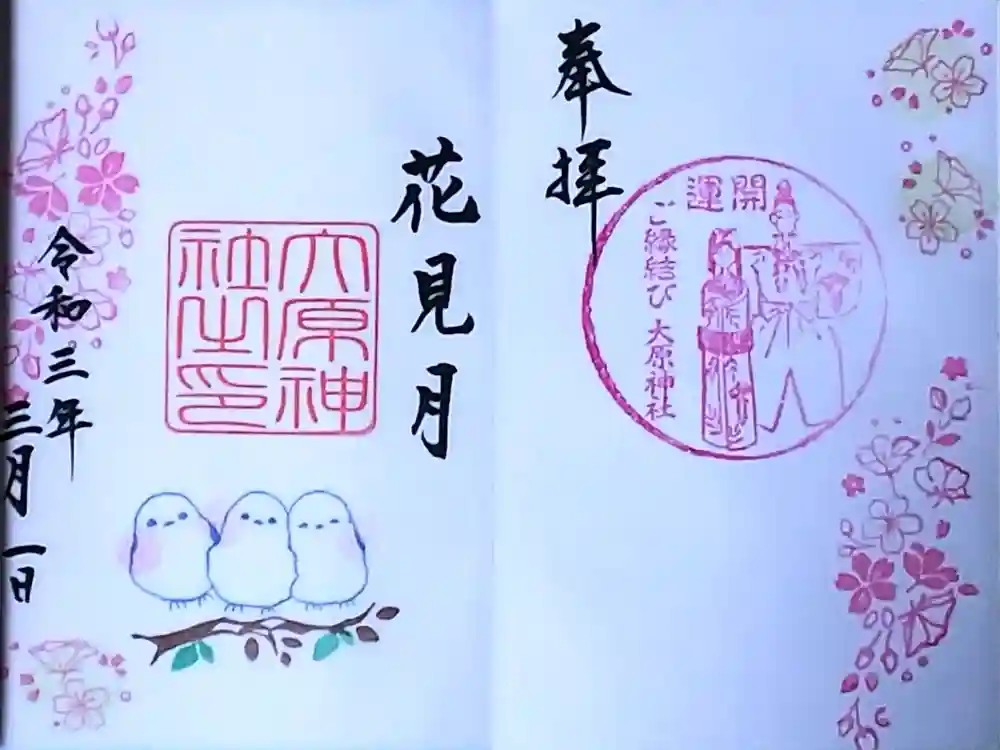 奉拝
運開
ご縁結び 大原神社
花見月
大原神
社之印
令和三年
三月一日